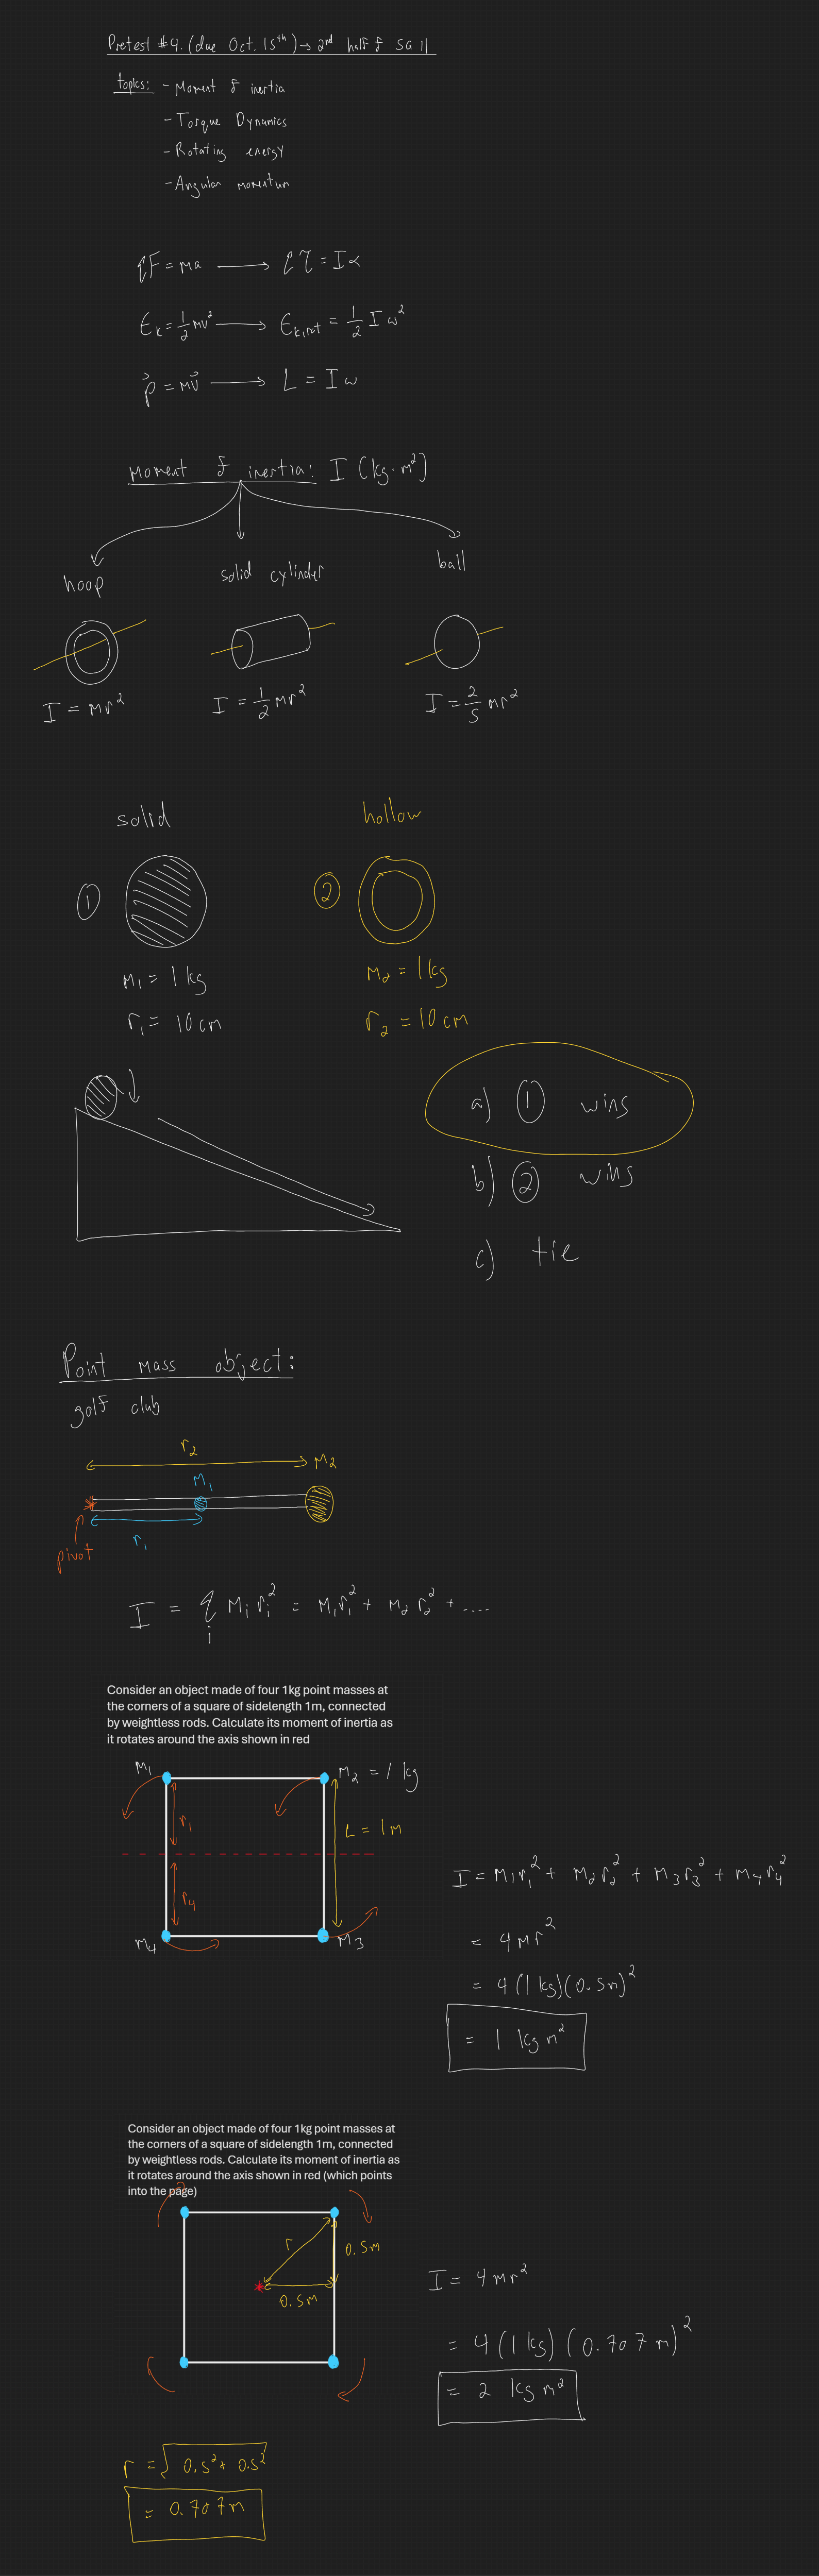 Pretest #4. (due Oct. 15th) → 2nd half of SG 11
topics: - Moment of inertia
- Torque Dynamics
- Rotating energy
- Angular momentum
ΣF = ma → Στ = Iα
Ek = 1/2 mv² → Ek,rot = 1/2 I ω²
p⃗ = mv⃗ → L = Iω
Moment of inertia: I (kg·m²)
hoop
solid cylinder
ball
I = mr²
I = 1/2 mr²
I = 2/5 mr²
solid
hollow
①
②
m₁ = 1 kg
m₂ = 1 kg
r₁ = 10 cm
r₂ = 10 cm
a) ① wins
b) ② wins
c) tie
Point mass object:
golf club
r₂
M₂
M₁
r₁
pivot
I = Σᵢ Mᵢ rᵢ² = M₁r₁² + M₂r₂² + ....
Consider an object made of four 1kg point masses at
the corners of a square of sidelength 1m, connected
by weightless rods. Calculate its moment of inertia as
it rotates around the axis shown in red
M₁
M₂ = 1 kg
r₁
L = 1m
r₄
M₄
M₃
I = m₁r₁² + m₂r₂² + m₃r₃² + m₄r₄²
= 4mr²
= 4(1 kg)(0.5m)²
= 1 kg m²
Consider an object made of four 1kg point masses at
the corners of a square of sidelength 1m, connected
by weightless rods. Calculate its moment of inertia as
it rotates around the axis shown in red (which points
into the page)
r
0.5m
0.5m
I = 4mr²
= 4(1 kg)(0.707m)²
= 2 kg m²
r = √0.5² + 0.5²
= 0.707m